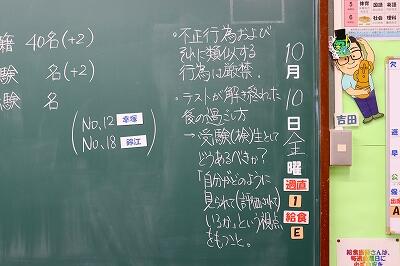 籍 40名(+2)
験 名(+2)
験 名
(No,12 幸塚
No,18 錦江)
10月10日金曜
週直
1
給食
E
・不正行為および
それに類似する
行為は厳禁.
・テストが解き終わった
後の過ごし方
→受験(検)生として
どうあるべきか?
「自分がどのように
見られて(評価されて)
いるか」という視点
をもつこと。
体育 国語 英語
社会 理科
吉田
欠
遅
早
公
保
出席
A
給食当番さんは、